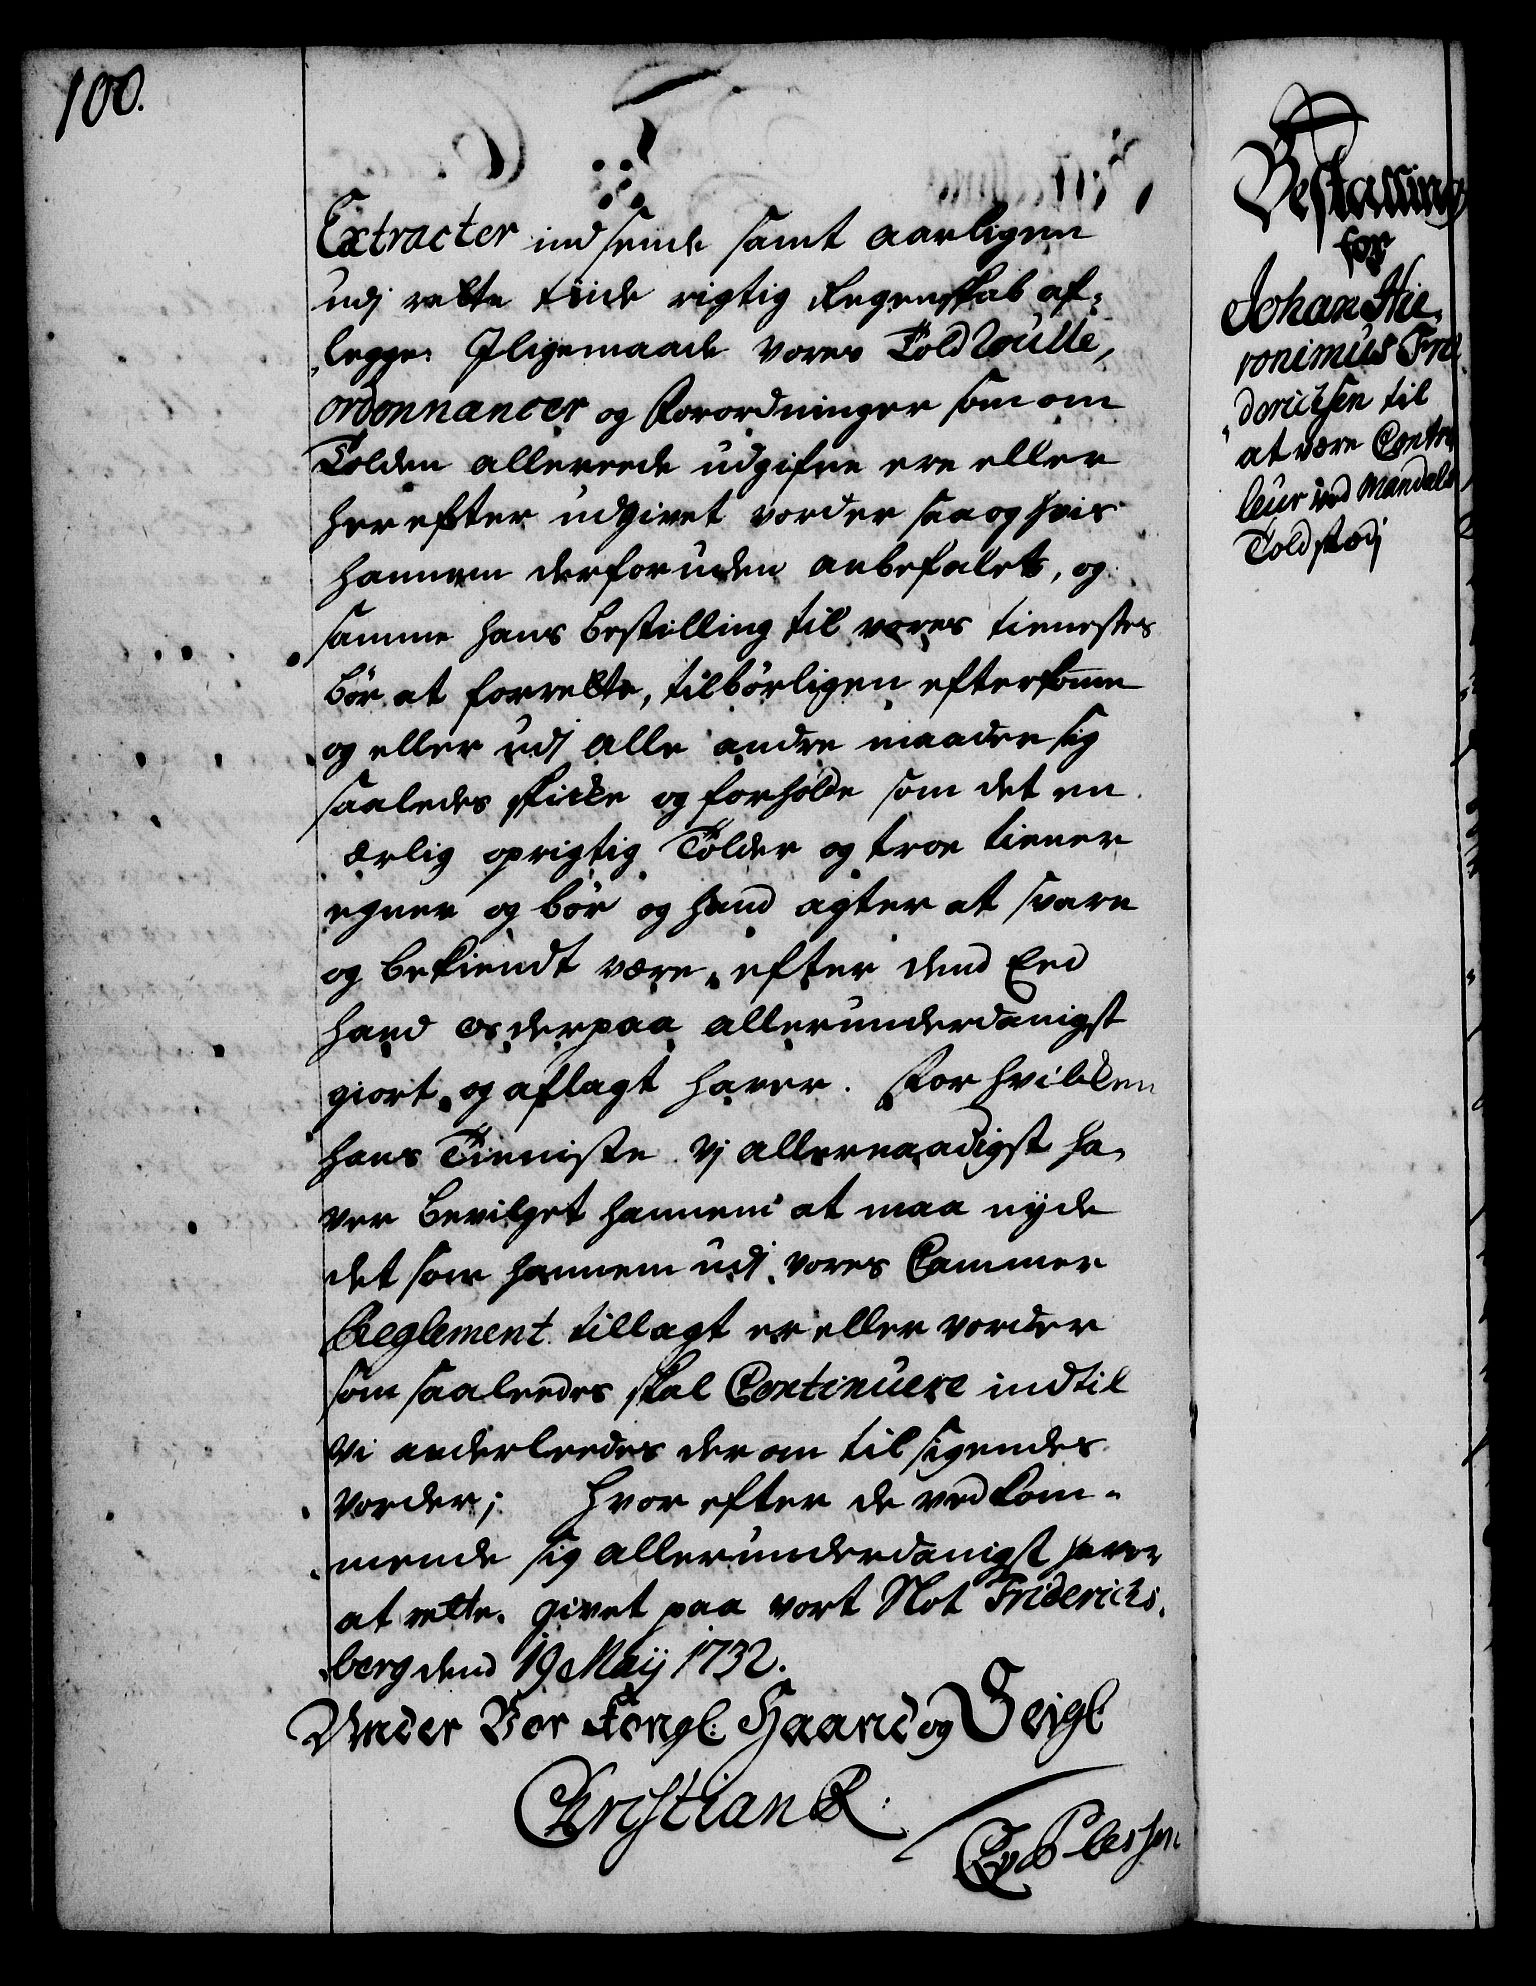 100.
Extracter indsende samt aarligen
udj rette tiide rigtig Regenskab af-
legge. Iligemaade vores Toldroulle,
ordonnancer og Forordninger som om
Tolden allereede udgifne ere eller
herefter udgivet vorder saa og hvis
hannem derforuden anbefalet, og
samme hans bestilling til vores tienestes
bør at forrette, tilbørligen efterkomme
og eller udj alle andre maader sig
saaledes skicke og forholde som det en
ærlig oprigtig Tolder og troe tiener
egner og bør og hand agter at svare
og bekiendt være, efter dend Eed
hand os derpaa allerunderdanigst
giort og aflagt haver. For hvilcken
hans Tieniste Vj allernaadigst ha-
ver bevilget hannem at maa nyde
det som hannem udj vores Cammer
Reglement tillagt er eller vorder
som saaleedes skal Continuere indtil
Vi anderleedes derom til sigendes
vorder; Hvor efter de vedkom-
mende sig allerunderdanigst haver
at rette. Givet paa vort Slot Friderichs-
berg dend 19 Maij 1732.
Under Vor Kongl: Haand og Seigl
Christian R.
CA v Plessen
Bestalling
for
Johan Hie-
ronimus Fri
derichsen til
at være Contro
leur ved Mandals
Toldstædj